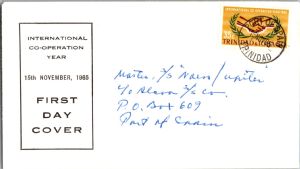 INTERNATIONAL
CO-OPERATION
YEAR
15th NOVEMBER, 1965
FIRST
DAY
COVER
INTERNATIONAL CO-OPERATION YEAR 1965
TRINIDAD & TOBAGO
TRINIDAD
Master, S/S "Naess/Jupiter
c/o Alcoa S/S Co.
P.O. Box 609
Port of Spain